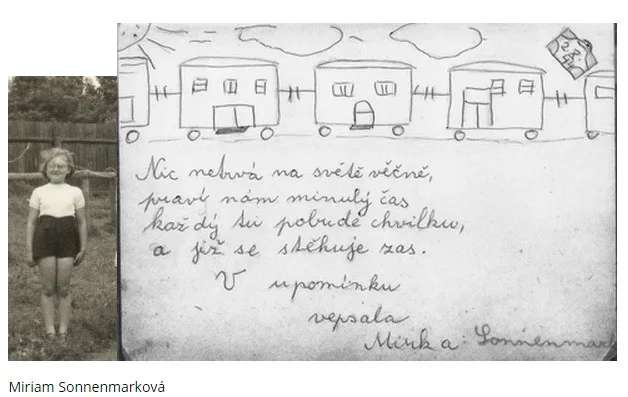 Nic netrvá na světě věčně,
praví nám minulý čas
každý tu pobude chvilku,
a již se stěhuje zas.
V upomínku
vepsala
Mirka Sonnenmar
Miriam Sonnenmarková